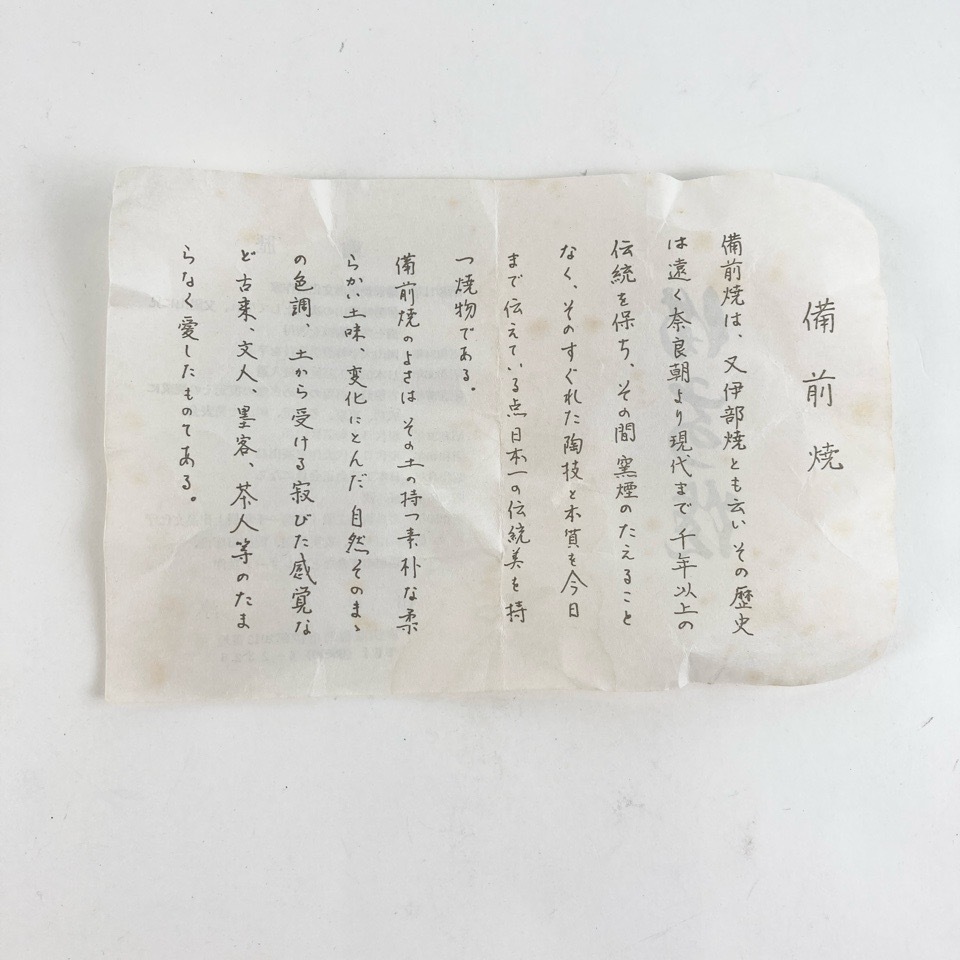 備前焼
備前焼は、又伊部焼とも云いその歴史
は遠く奈良朝より現代まで千年以上の
伝統を保ち、その間 窯煙のたえること
なく、そのすぐれた陶技と本質を今日
まで伝えている点日本一の伝統美を持
つ焼物である。
備前焼のよさは その土の持つ素朴な柔
らかい土味、変化にとんだ 自然そのまゝ
の色調 土から受ける寂びた感覚な
ど古来、文人、墨客、茶人等のたま
らなく愛したものてある。